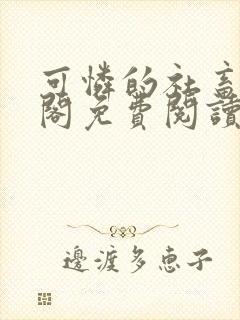 可憐的社畜
閣免費閱讀
邊渡多恵子